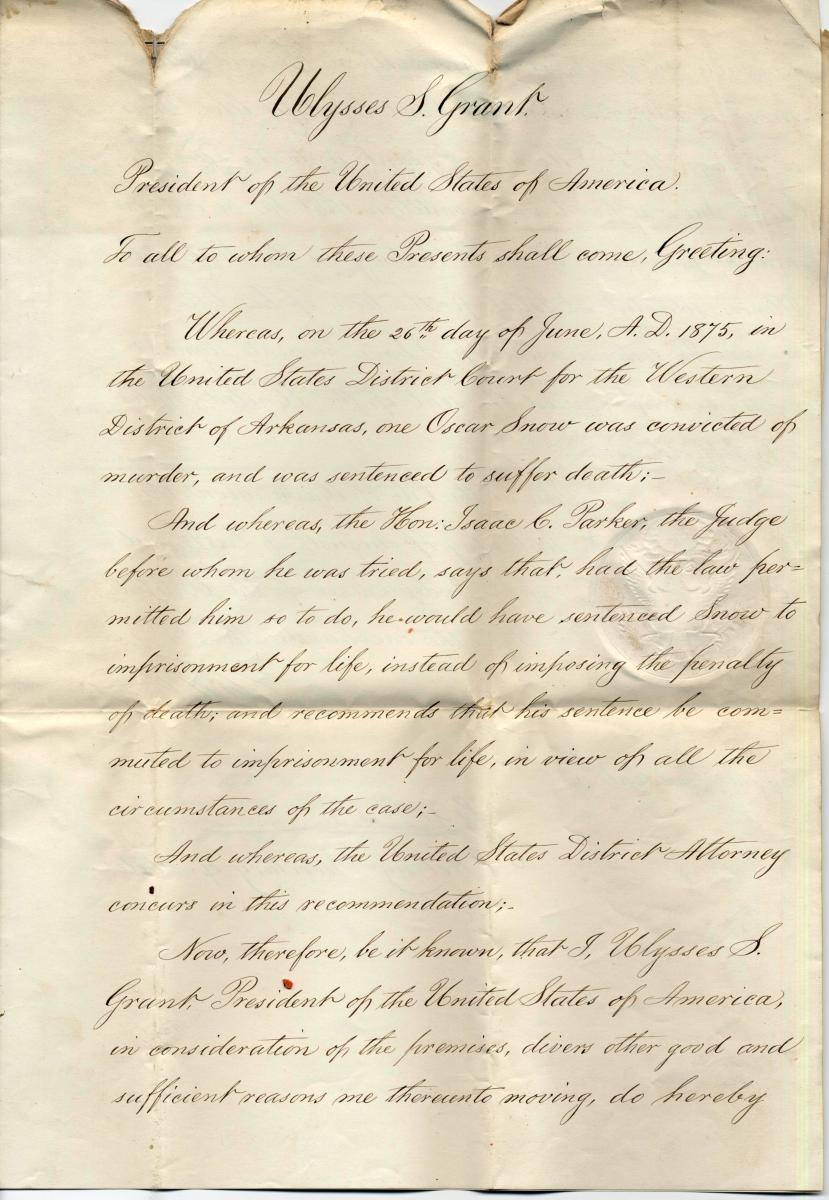 Ulysses S. Grant.
President of the United States of America.
To all to whom these Presents shall come, Greeting:
Whereas, on the 26th day of June, A. D. 1875, in
the United States District Court for the Western
District of Arkansas, one Oscar Snow was convicted of
murder, and was sentenced to suffer death;-
And whereas, the Hon: Isaac C. Parker, the Judge
before whom he was tried, says that, had the law per=
mitted him so to do, he would have sentenced Snow to
imprisonment for life, instead of imposing the penalty
of death; and recommends that his sentence be com=
muted to imprisonment for life, in view of all the
circumstances of the case;-
And whereas, the United States District Attorney
concurs in this recommendation;-
Now, therefore, be it known, that I, Ulysses S.
Grant, President of the United States of America,
in consideration of the premises, divers other good and
sufficient reasons me thereunto moving, do hereby